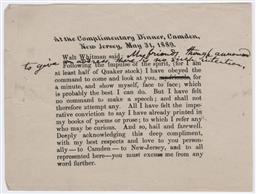 At the Complimentary Dinner, Camden,
New Jersey, May 31, 1889.
Walt Whitman said: My friends, though announced
to give an address there is no such intention.
Following the impulse of the spirit, (for I am
at least half of Quaker stock) I have obeyed the
command to come and look at you,
for a minute, and show myself, face to face; which
is probably the best I can do. But I have felt
no command to make a speech; and shall not
therefore attempt any. All I have felt the impe-
rative conviction to say I have already printed in
my books of poems or prose; to which I refer any
who may be curious. And so, hail and farewell.
Deeply acknowledging this deep compliment,
with my best respects and love to you person-
ally—to Camden—to New-Jersey, and to all
represented here—you must excuse me from any
word further.